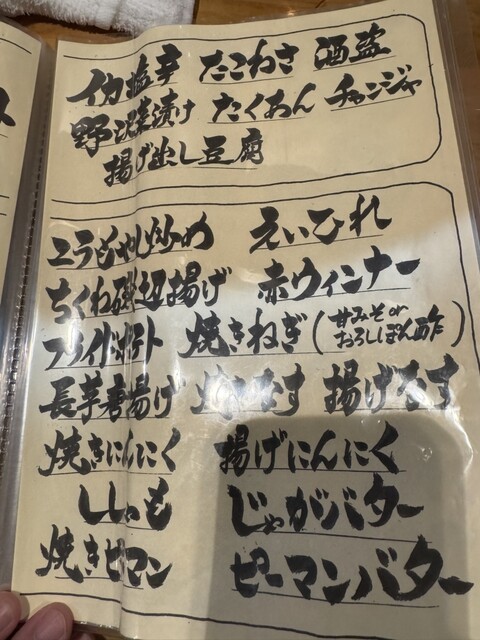 イカ塩辛 たこわさ 酒盗
野沢菜漬け たくあん チャンジャ
揚げ出し豆腐
ニラもやし炒め えいひれ
ちくわ磯辺揚げ 赤ウィンナー
フライドポテト 焼きねぎ(甘みそor
おろしぽん酢)
長芋唐揚げ 焼きなす 揚げなす
焼きにんにく 揚げにんにく
ししゃも じゃがバター
焼きピーマン ピーマンバター